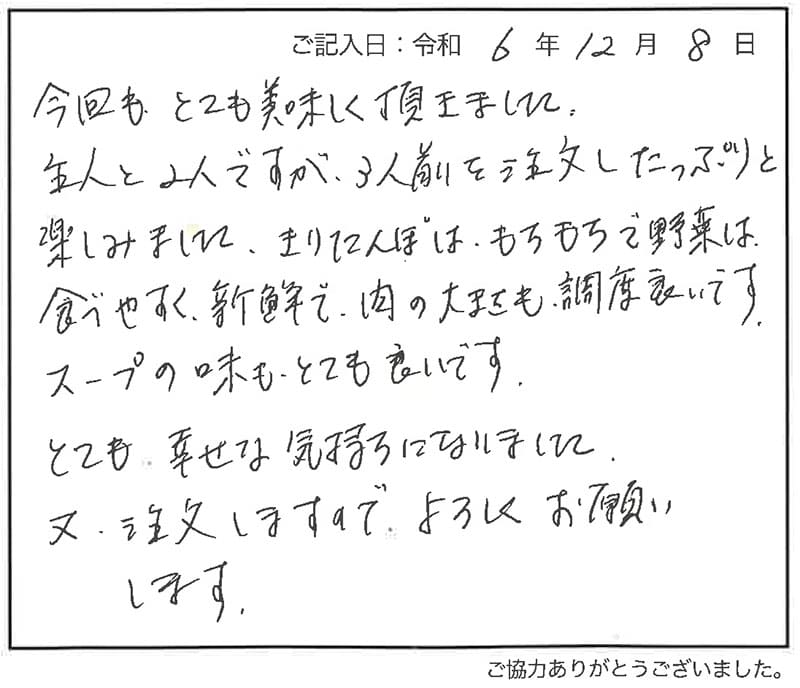 ご記入日：令和 6 年 12 月 8 日
今回も とても美味しく頂きました.
主人と2人ですが、3人前を注文したっぷりと
楽しみました、きりたんぽは、もちもちで野菜は
食べやすく、新鮮で、肉の大きさも、調度良いです.
スープの味も、とても良いです.
とても、幸せな気持ちになりました.
又、注文しますので、よろしくお願い
します.
ご協力ありがとうございました。